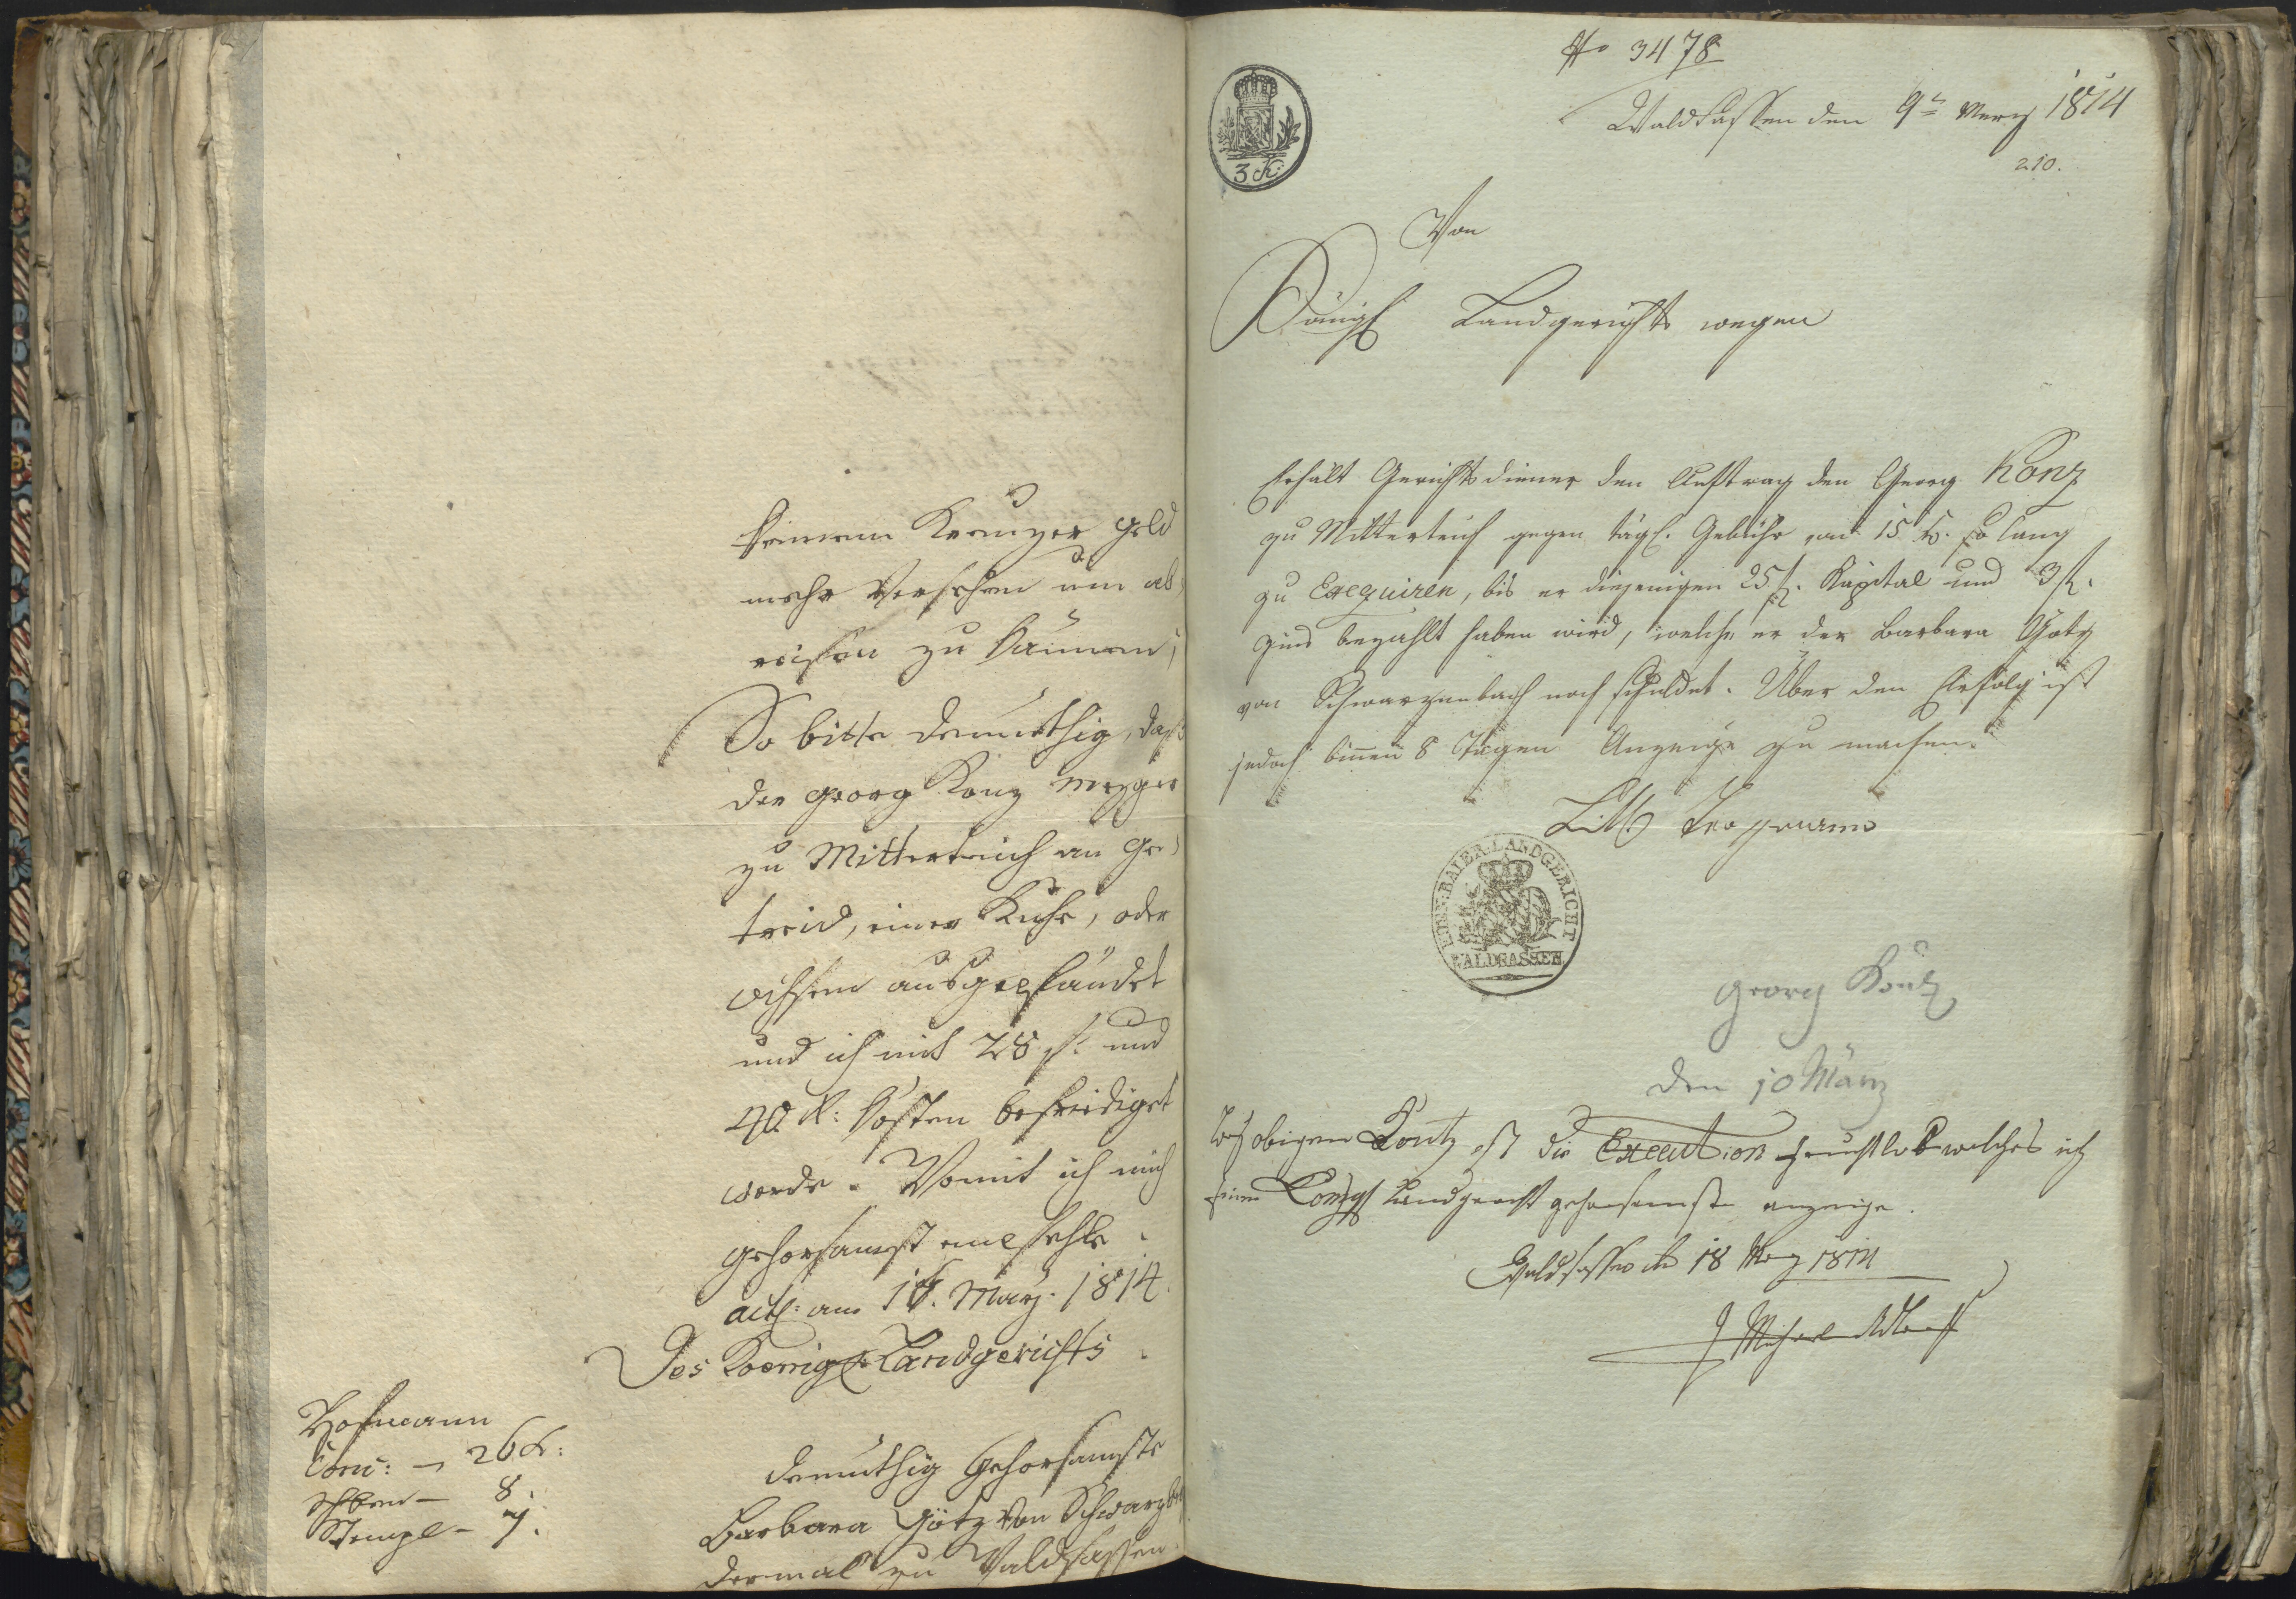 keinem Kreuzer Geld
mehr versehen um ab¬
reisen zu können;
So bitte demüthig, daß
der Georg Konz Mezger
zu Mitterteich an Ge¬
treid, einer Kuhe, oder
Ochsen ausgepfändet
und ich mit 28 f. und
40 k: Kosten befriediget
werde. Womit ich mich
gehorsamst empfehle.
act: am 18. März. 1814.
Des Koenigl. Landgerichts
Hofmann
Conc: – 26 k:
Schben – 8.
Stempl – 7.
demüthig gehorsamste
Barbara Götz von Schwarzb
dermal zu Waldsassen
No 3478
3. K:
Waldsassen den 9n Merz 1814
210.
Von
Königl Landgerichts wegen
Erhält Gerichtsdiener den Auftrag den Georg Konz
zu Mitterteich gegen tägl. Gebühr von 15 k. so lang
zu Exequiren, bis er diejenigen 25 f. Kapital und 3 f.
Zins bezahlt haben wird, welche er der Barbara Götz
von Schwarzenbach noch schuldet. Über den Erfolg ist
jedoch binnen 8 Tagen Anzeige zu machen.
KOEN. BAIER. LANDGERICHT
WALDSASSEN
Georg Konz
den 10 März
Bey obigen Kontz ist die Execution fruchtlos welches ich
einem Königl Landgericht gehorsamst anzeige.
Waldsassen den 18 Merz 1814
Michael